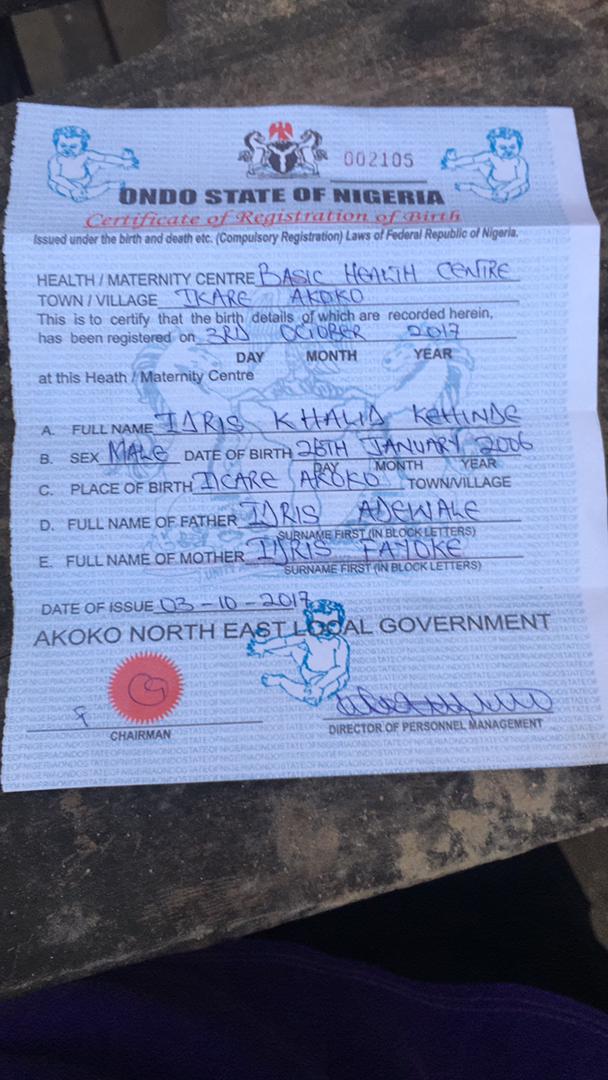 002105
ONDO STATE OF NIGERIA
Certificate of Registration of Birth
Issued under the birth and death etc. (Compulsory Registration) Laws of Federal Republic of Nigeria.
HEALTH / MATERNITY CENTRE BASIC HEALTH CENTRE
TOWN / VILLAGE IKARE AKOKO
This is to certify that the birth details of which are recorded herein,
has been registered on 3RD OCTOBER 2017
DAY MONTH YEAR
at this Heath / Maternity Centre
A. FULL NAME IDRIS KHALID KEHINDE
B. SEX MALE DATE OF BIRTH 26TH JANUARY 2006
DAY MONTH YEAR
C. PLACE OF BIRTH IKARE AKOKO TOWN/VILLAGE
D. FULL NAME OF FATHER IDRIS ADEWALE
SURNAME FIRST (IN BLOCK LETTERS)
E. FULL NAME OF MOTHER IDRIS FAYOKE
SURNAME FIRST (IN BLOCK LETTERS)
DATE OF ISSUE 03-10-2017
AKOKO NORTH EAST LOCAL GOVERNMENT
CHAIRMAN
DIRECTOR OF PERSONNEL MANAGEMENT